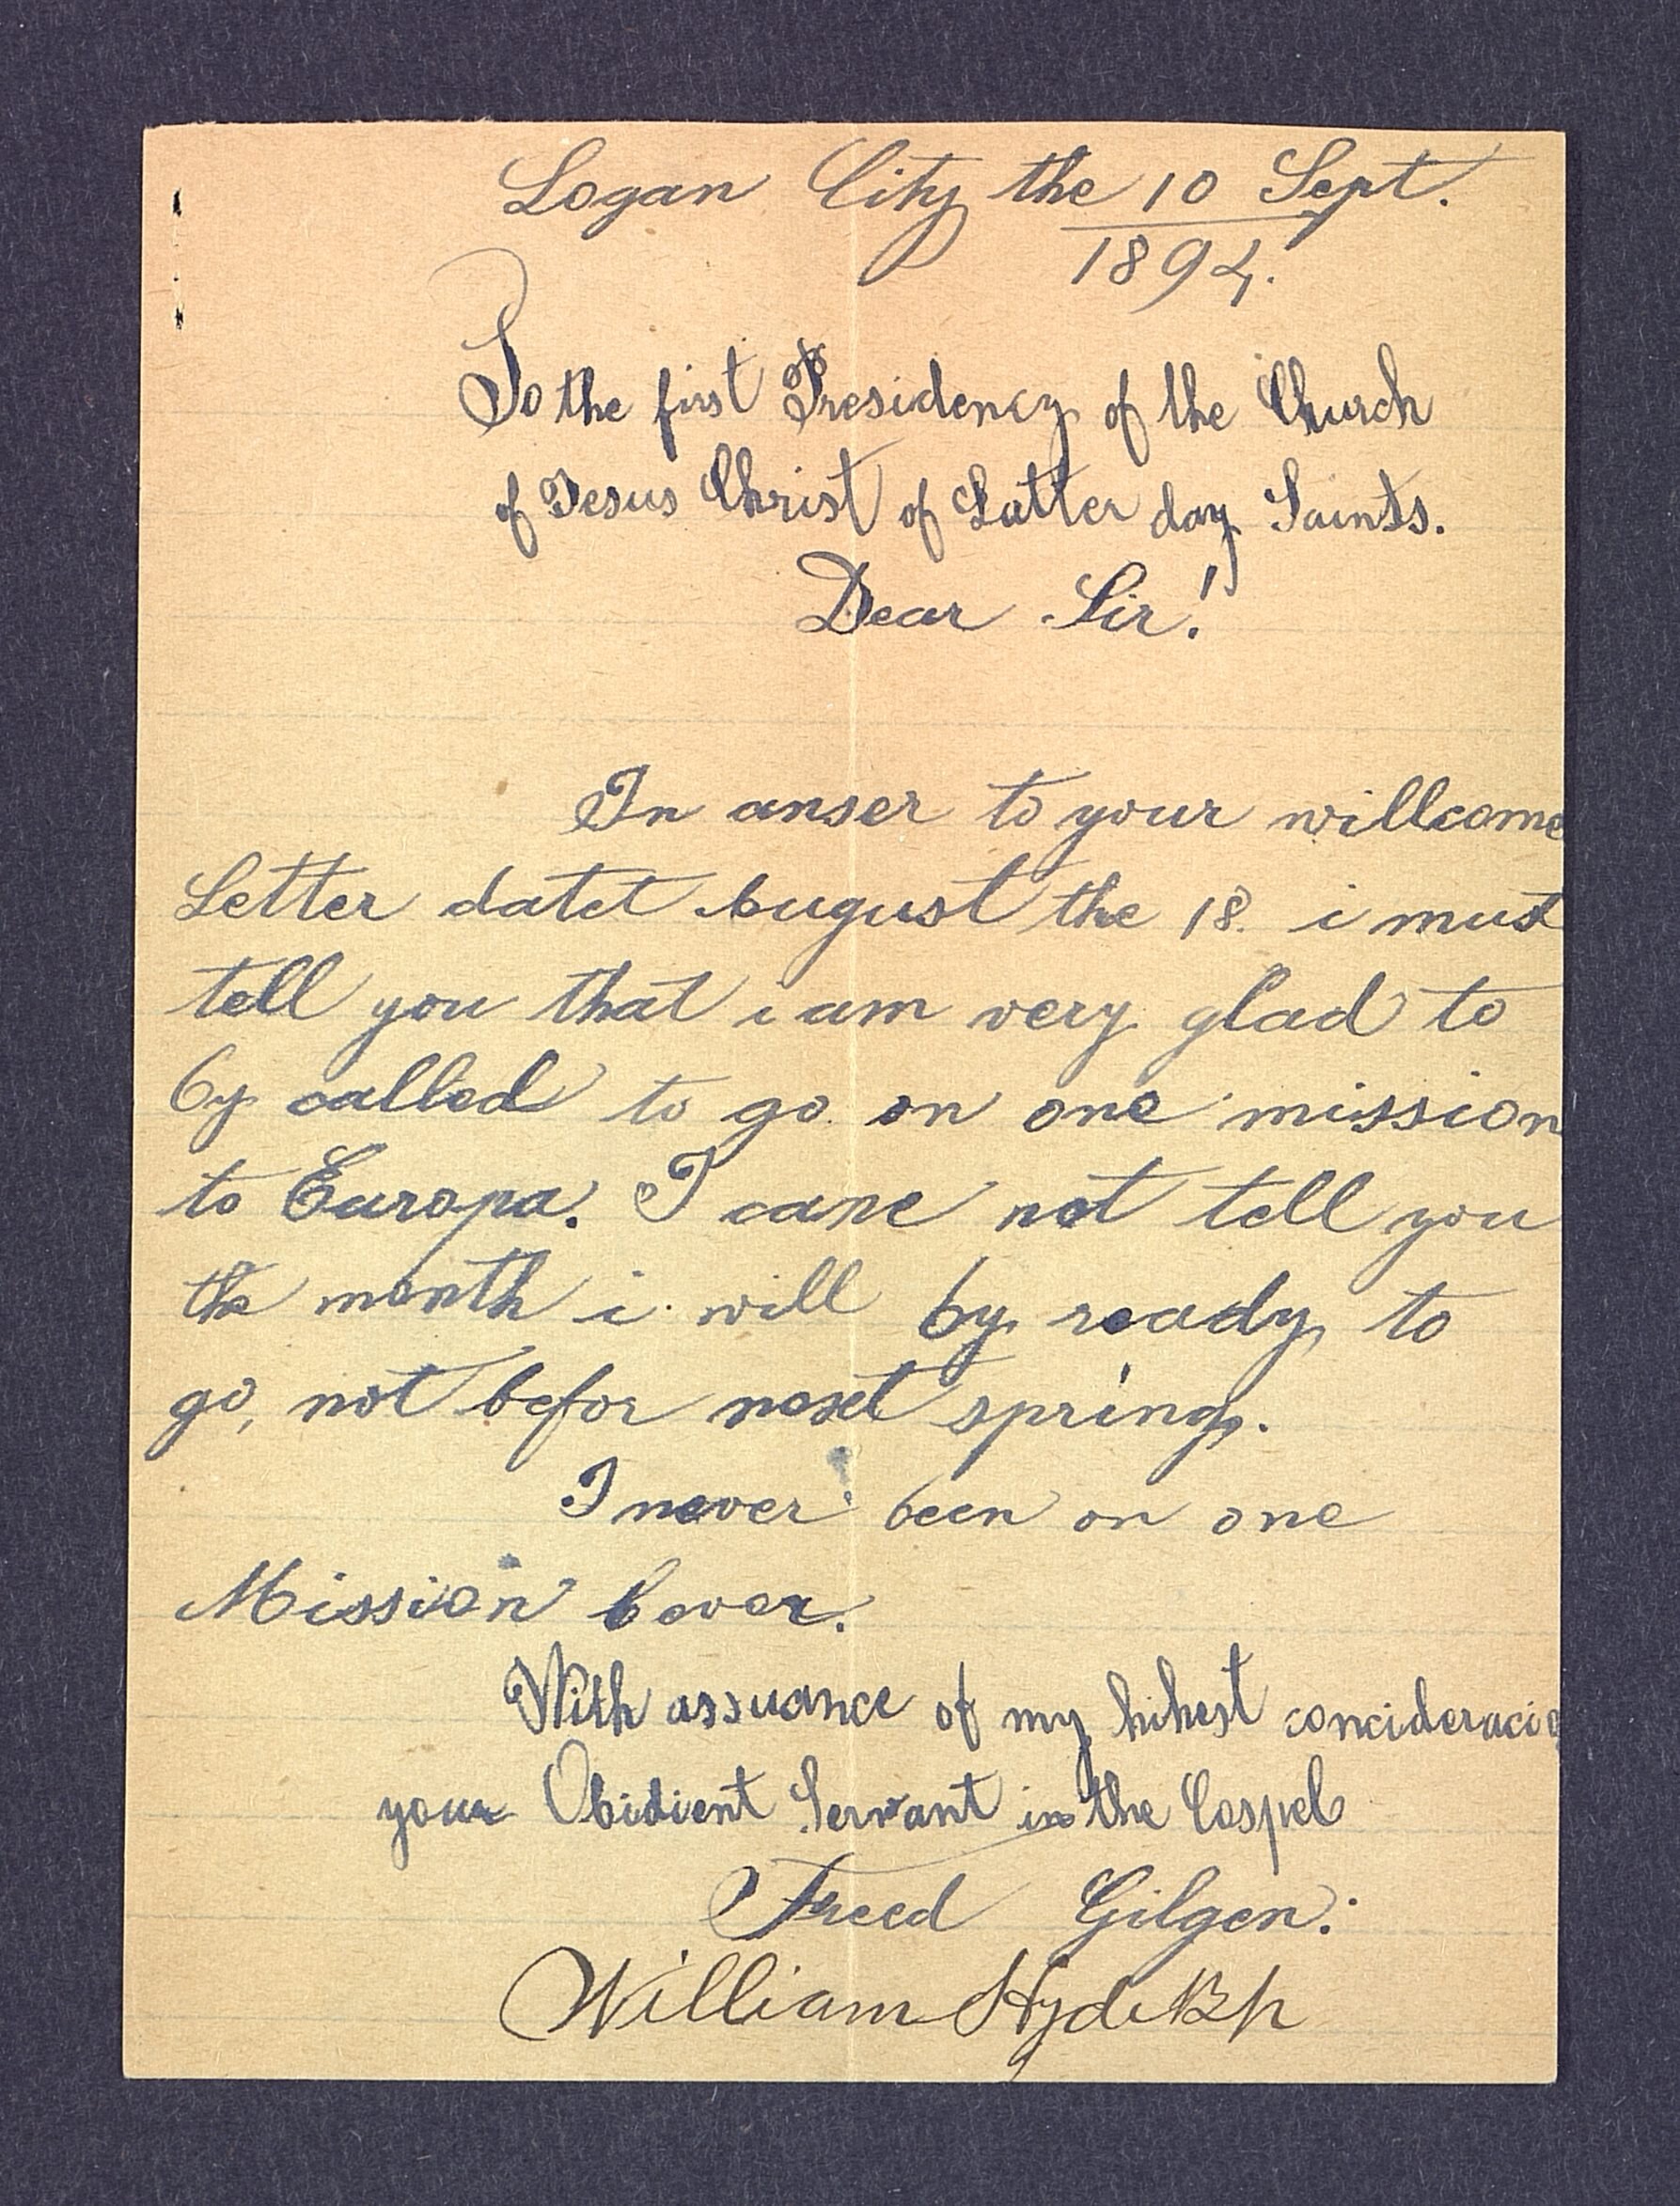 Logan City the 10 Sept.
1894.
To the first Presidency of the Church
of Jesus Christ of Latter day Saints.
Dear Sir!
In anser to your willcome
Letter datet August the 18. i must
tell you that i am very glad to
by called to go on one mission
to Europa. I cane not tell you
the month i will by ready to
go, not befor next spring.
I never been on one
Mission bevor.
With assuance of my hihest concideracio
your Obidient Servant in the Gospel
Freed Gilgen.
William Hyde Bp